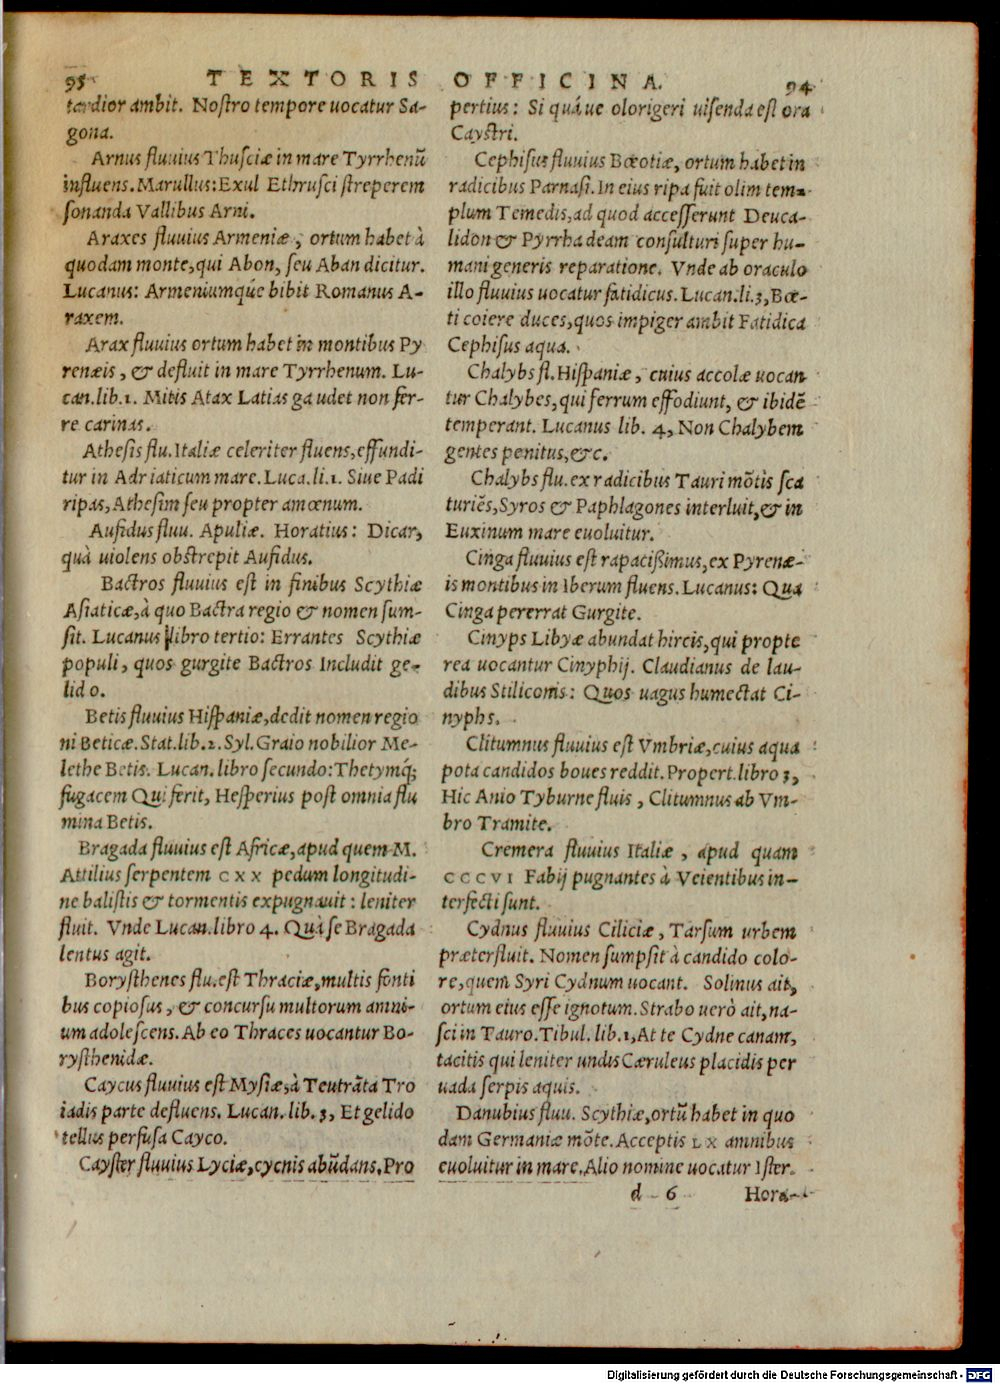 95 TEXTORIS OFFICINA. 94
tardior ambit. Nostro tempore uocatur Sa-
gona.
Arnus fluuius Thusciæ in mare Tyrrhenũ
influens. Marullus: Exul Ethrusci streperem
sonanda Vallibus Arni.
Araxes fluuius Armeniæ, ortum habet à
quodam monte, qui Abon, seu Aban dicitur.
Lucanus: Armeniumq́ue bibit Romanus A-
raxem.
Arax fluuius ortum habet in montibus Py
renæis, & defluit in mare Tyrrhenum. Lu-
can. lib. 1. Mitis Atax Latias gaudet non fer-
re carinas.
Athesis flu. Italiæ celeriter fluens, effundi-
tur in Adriaticum mare. Luca. li. 1. Siue Padi
ripas, Athesim seu propter amœnum.
Aufidus fluu. Apuliæ. Horatius: Dicar,
quà uiolens obstrepit Aufidus.
Bactros fluuius est in finibus Scythiæ
Asiaticæ, à quo Bactra regio & nomen sum-
sit. Lucanus libro tertio: Errantes Scythiæ
populi, quos gurgite Bactros Includit ge-
lido.
Betis fluuius Hispaniæ, dedit nomen regio
ni Beticæ. Stat. lib. 2. Syl. Graio nobilior Me-
lethe Betis. Lucan. libro secundo: Thetymq́;
fugacem Qui ferit, Hesperius post omnia flu
mina Betis.
Bragada fluuius est Africæ, apud quem M.
Attilius serpentem CXX pedum longitudi-
ne balistis & tormentis expugnauit: leniter
fluit. Vnde Lucan. libro 4. Quà se Bragada
lentus agit.
Borysthenes flu. est Thraciæ, multis fonti
bus copiosus, & concursu multorum amni-
um adolescens. Ab eo Thraces uocantur Bo-
rysthenidæ.
Caycus fluuius est Mysiæ, à Teutrãta Tro
iadis parte defluens. Lucan. lib. 3, Et gelido
tellus perfusa Cayco.
Cayster fluuius Lyciæ, cycnis abũdans. Pro
pertius: Si quá ue olorigeri uisenda est ora
Caystri.
Cephisus fluuius Bœotiæ, ortum habet in
radicibus Parnasi. In eius ripa fuit olim tem-
plum Temedis, ad quod accesserunt Deuca-
lidon & Pyrrha deam consulturi super hu-
mani generis reparatione. Vnde ab oraculo
illo fluuius uocatur fatidicus. Lucan. li. 3, Bœ-
ti coiere duces, quos impiger ambit Fatidica
Cephisus aqua.
Chalybs fl. Hispaniæ, cuius accolæ uocan
tur Chalybes, qui ferrum effodiunt, & ibidẽ
temperant. Lucanus lib. 4, Non Chalybem
gentes penitus, &c.
Chalybs flu. ex radicibus Tauri mõtis sca
turiẽs, Syros & Paphlagones interluit, & in
Euxinum mare euoluitur.
Cinga fluuius est rapacißimus, ex Pyrenæ-
is montibus in Iberum fluens. Lucanus: Qua
Cinga pererrat Gurgite.
Cinyps Libyæ abundat hircis, qui propte
rea uocantur Cinyphij. Claudianus de lau-
dibus Stiliconis: Quos uagus humectat Ci-
nyphs.
Clitumnus fluuius est Vmbriæ, cuius aqua
pota candidos boues reddit. Propert. libro 3,
Hic Anio Tyburne fluis, Clitumnus ab Vm-
bro Tramite.
Cremera fluuius Italiæ, apud quam
CCCVI Fabij pugnantes à Veientibus in-
terfecti sunt.
Cydnus fluuius Ciliciæ, Tarsum urbem
præterfluit. Nomen sumpsit à candido colo-
re, quem Syri Cydnum uocant. Solinus ait,
ortum eius esse ignotum. Strabo uerò ait, na-
sci in Tauro. Tibul. lib. 1, At te Cydne canam,
tacitis qui leniter undis Cæruleus placidis per
uada serpis aquis.
Danubius fluu. Scythiæ, ortũ habet in quo
dam Germaniæ mõte. Acceptis LX amnibus
euoluitur in mare. Alio nomine uocatur Ister.
d 6 Hora-
Digitalisierung gefördert durch die Deutsche Forschungsgemeinschaft - DFG